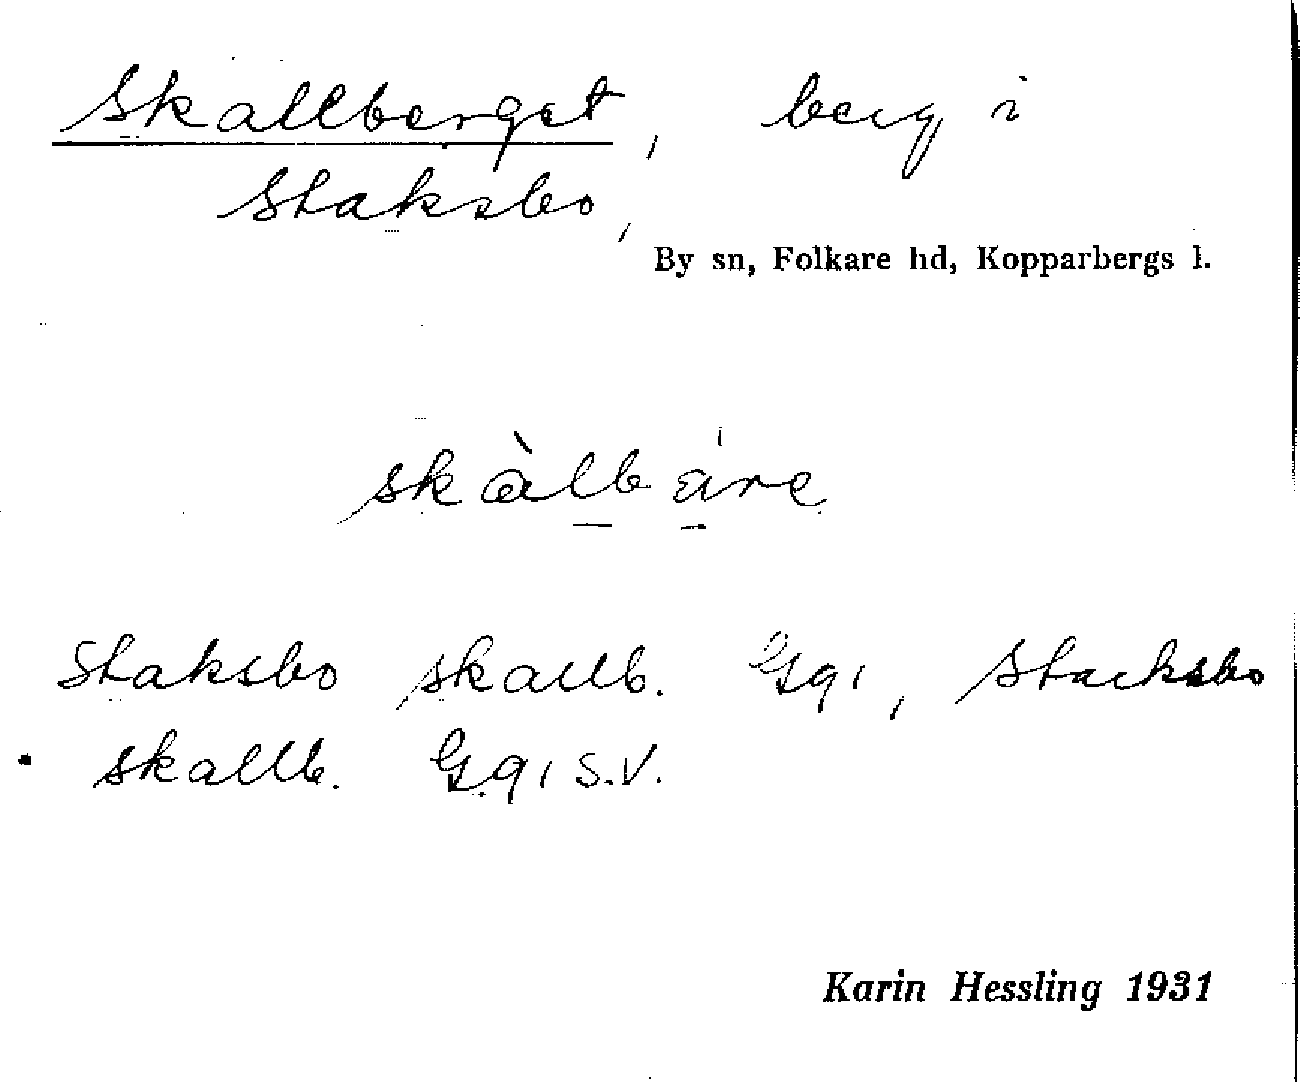 Skallberget, berg i
Staksbo,
By sn, Folkare hd, Kopparbergs l.
skàlbáre
Staksbo skallb. Gg1, Stacksbo
skallb. Gg1 S.V.
Karin Hessling 1931